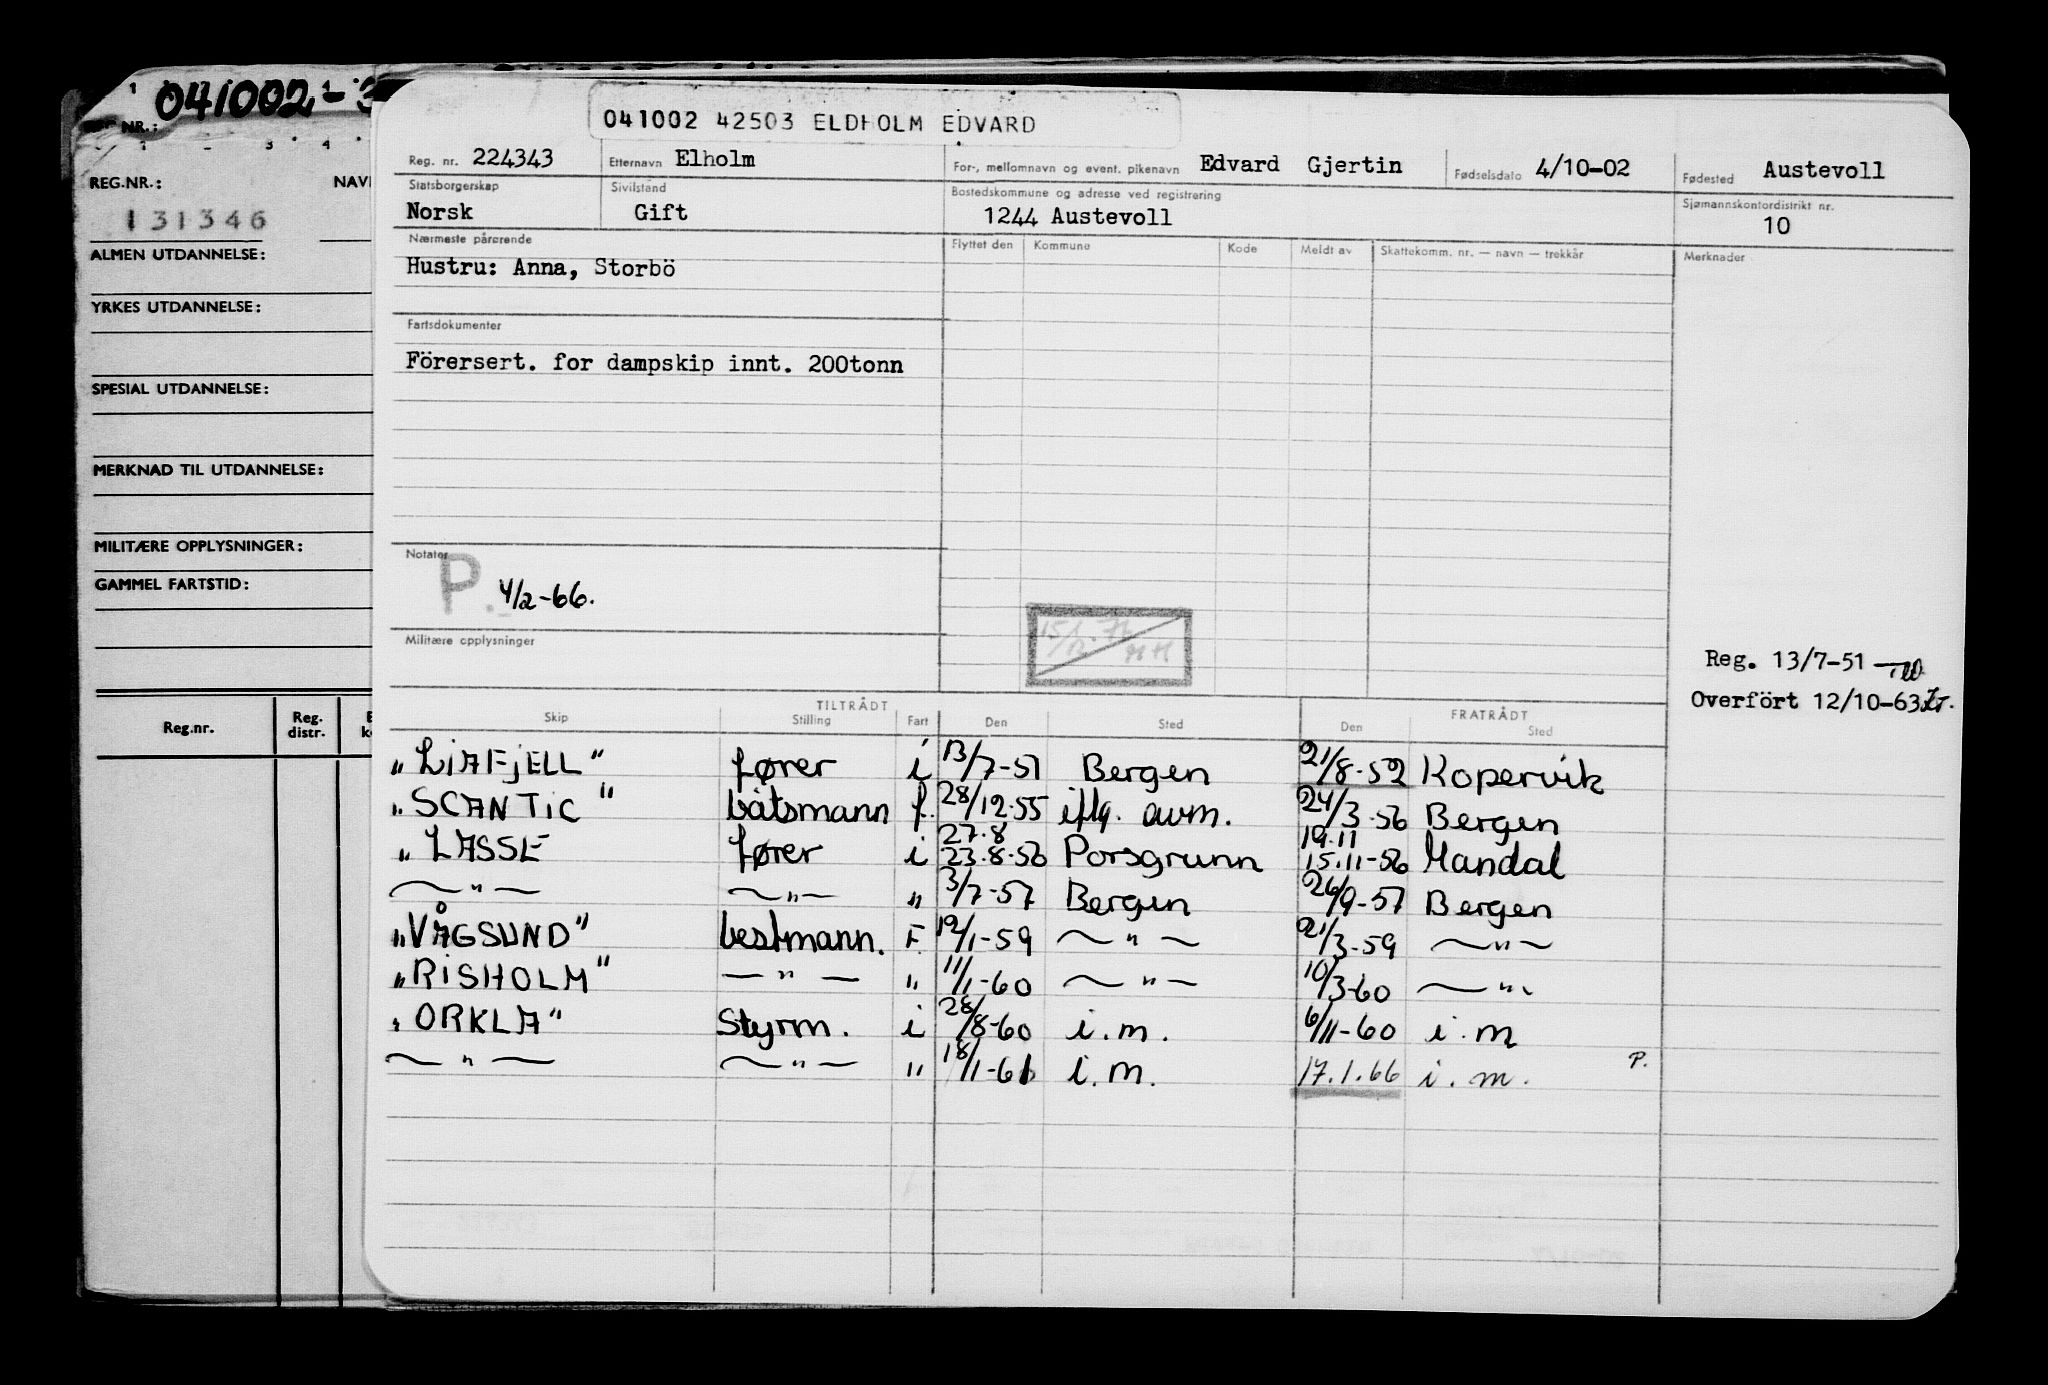 041002-3
NR.:
REG.NR.: NAV
131346
ALMEN UTDANNELSE:
YRKES UTDANNELSE:
SPESIAL UTDANNELSE:
MERKNAD TIL UTDANNELSE:
MILITÆRE OPPLYSNINGER:
GAMMEL FARTSTID:
Reg.nr. Reg. distr.
041002 42503 ELDHOLM EDVARD
Reg. nr. 224343 Etternavn Elholm For-, mellomnavn og event. pikenavn Edvard Gjertin Fødselsdato 4/10-02 Fødested Austevoll
Statsborgerskap Sivilstand Bostedskommune og adresse ved registrering Sjømannskontordistrikt nr.
Norsk Gift 1244 Austevoll 10
Nærmeste pårørende Flyttet den Kommune Kode Meldt av Skattekomm. nr. — navn — trekkår Merknader
Hustru: Anna, Storbö
Fartsdokumenter
Förersert. for dampskip innt. 200tonn
Notater
P. 4/2-66.
Militære opplysninger
Reg. 13/7-51
Overfört 12/10-63
TILTRÅDT FRATRÅDT
Skip Stilling Fart Den Sted Den Sted
"LIAFJELL" fører i 13/7-51 Bergen 21/8-52 Kopervik
"SCANTIC" båtsmann f. 28/12-55 iflg. avm. 24/3-56 Bergen
27.8 19.11
"LASSE fører i 23.8-56 Porsgrunn 15.11-56 Mandal
—"— —"— " 3/7-57 Bergen 26/9-57 Bergen
"VÅGSUND" bestmann. F. 19/1-59 —"— 21/3-59 —"—
"RISHOLM" —"— " 11/1-60 —"— 10/3-60 —"—
"ORKLA" Styrm. i 28/8-60 i.m. 6/11-60 i.m
—"— —"— " 18/1-61 i.m. 17.1.66 i.m. P.